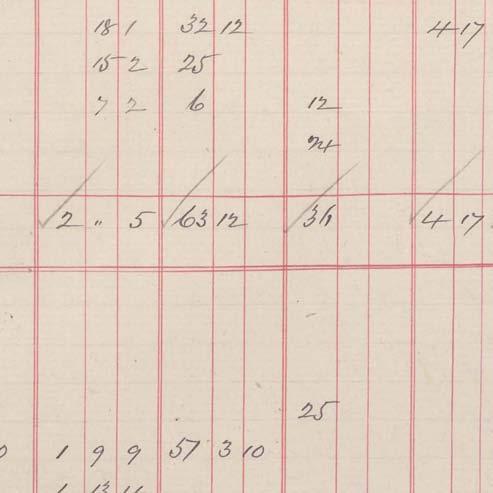 18 1 32 12 4 17
15 2 25
7 2 6 12
24
2 " 5 63 12 36 4 17
25
1 9 9 57 3 10
1 13 11